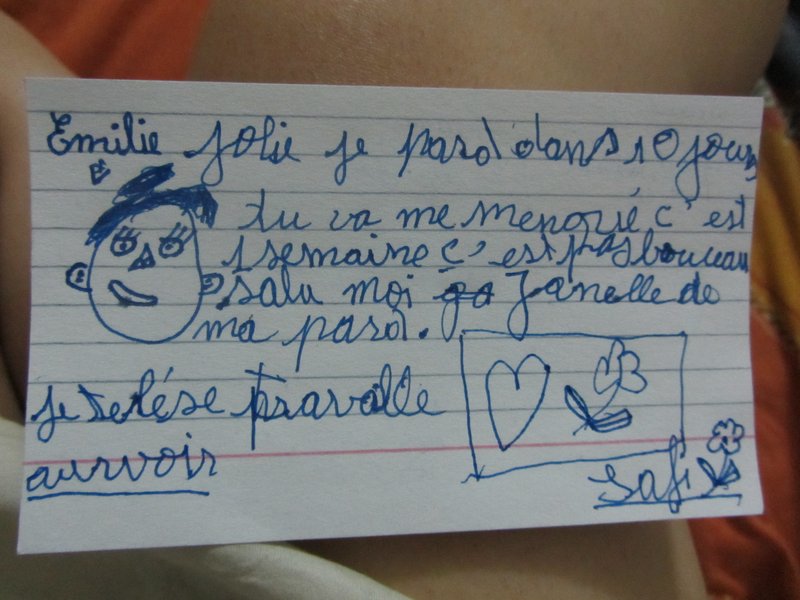 Emilie jolie je pard dans 10 jours
tu va me menqué c'est
1 semaine c'est pas boucau
salu moi Janelle de
ma pard.
je te lése travalle
aurvoir
Safi